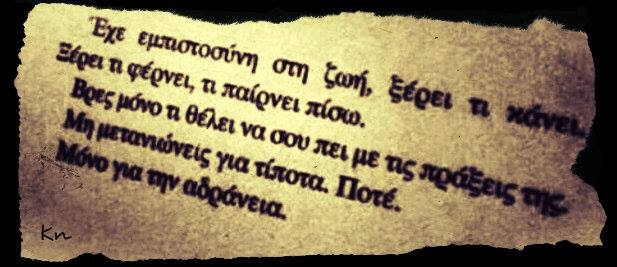 Έχε εμπιστοσύνη στη ζωή, ξέρει τι κάνει.
Ξέρει τι φέρνει, τι παίρνει πίσω.
Βρες μόνο τι θέλει να σου πει με τις πράξεις της.
Μη μετανιώνεις για τίποτα. Ποτέ.
Μόνο για την αδράνεια.
Kn